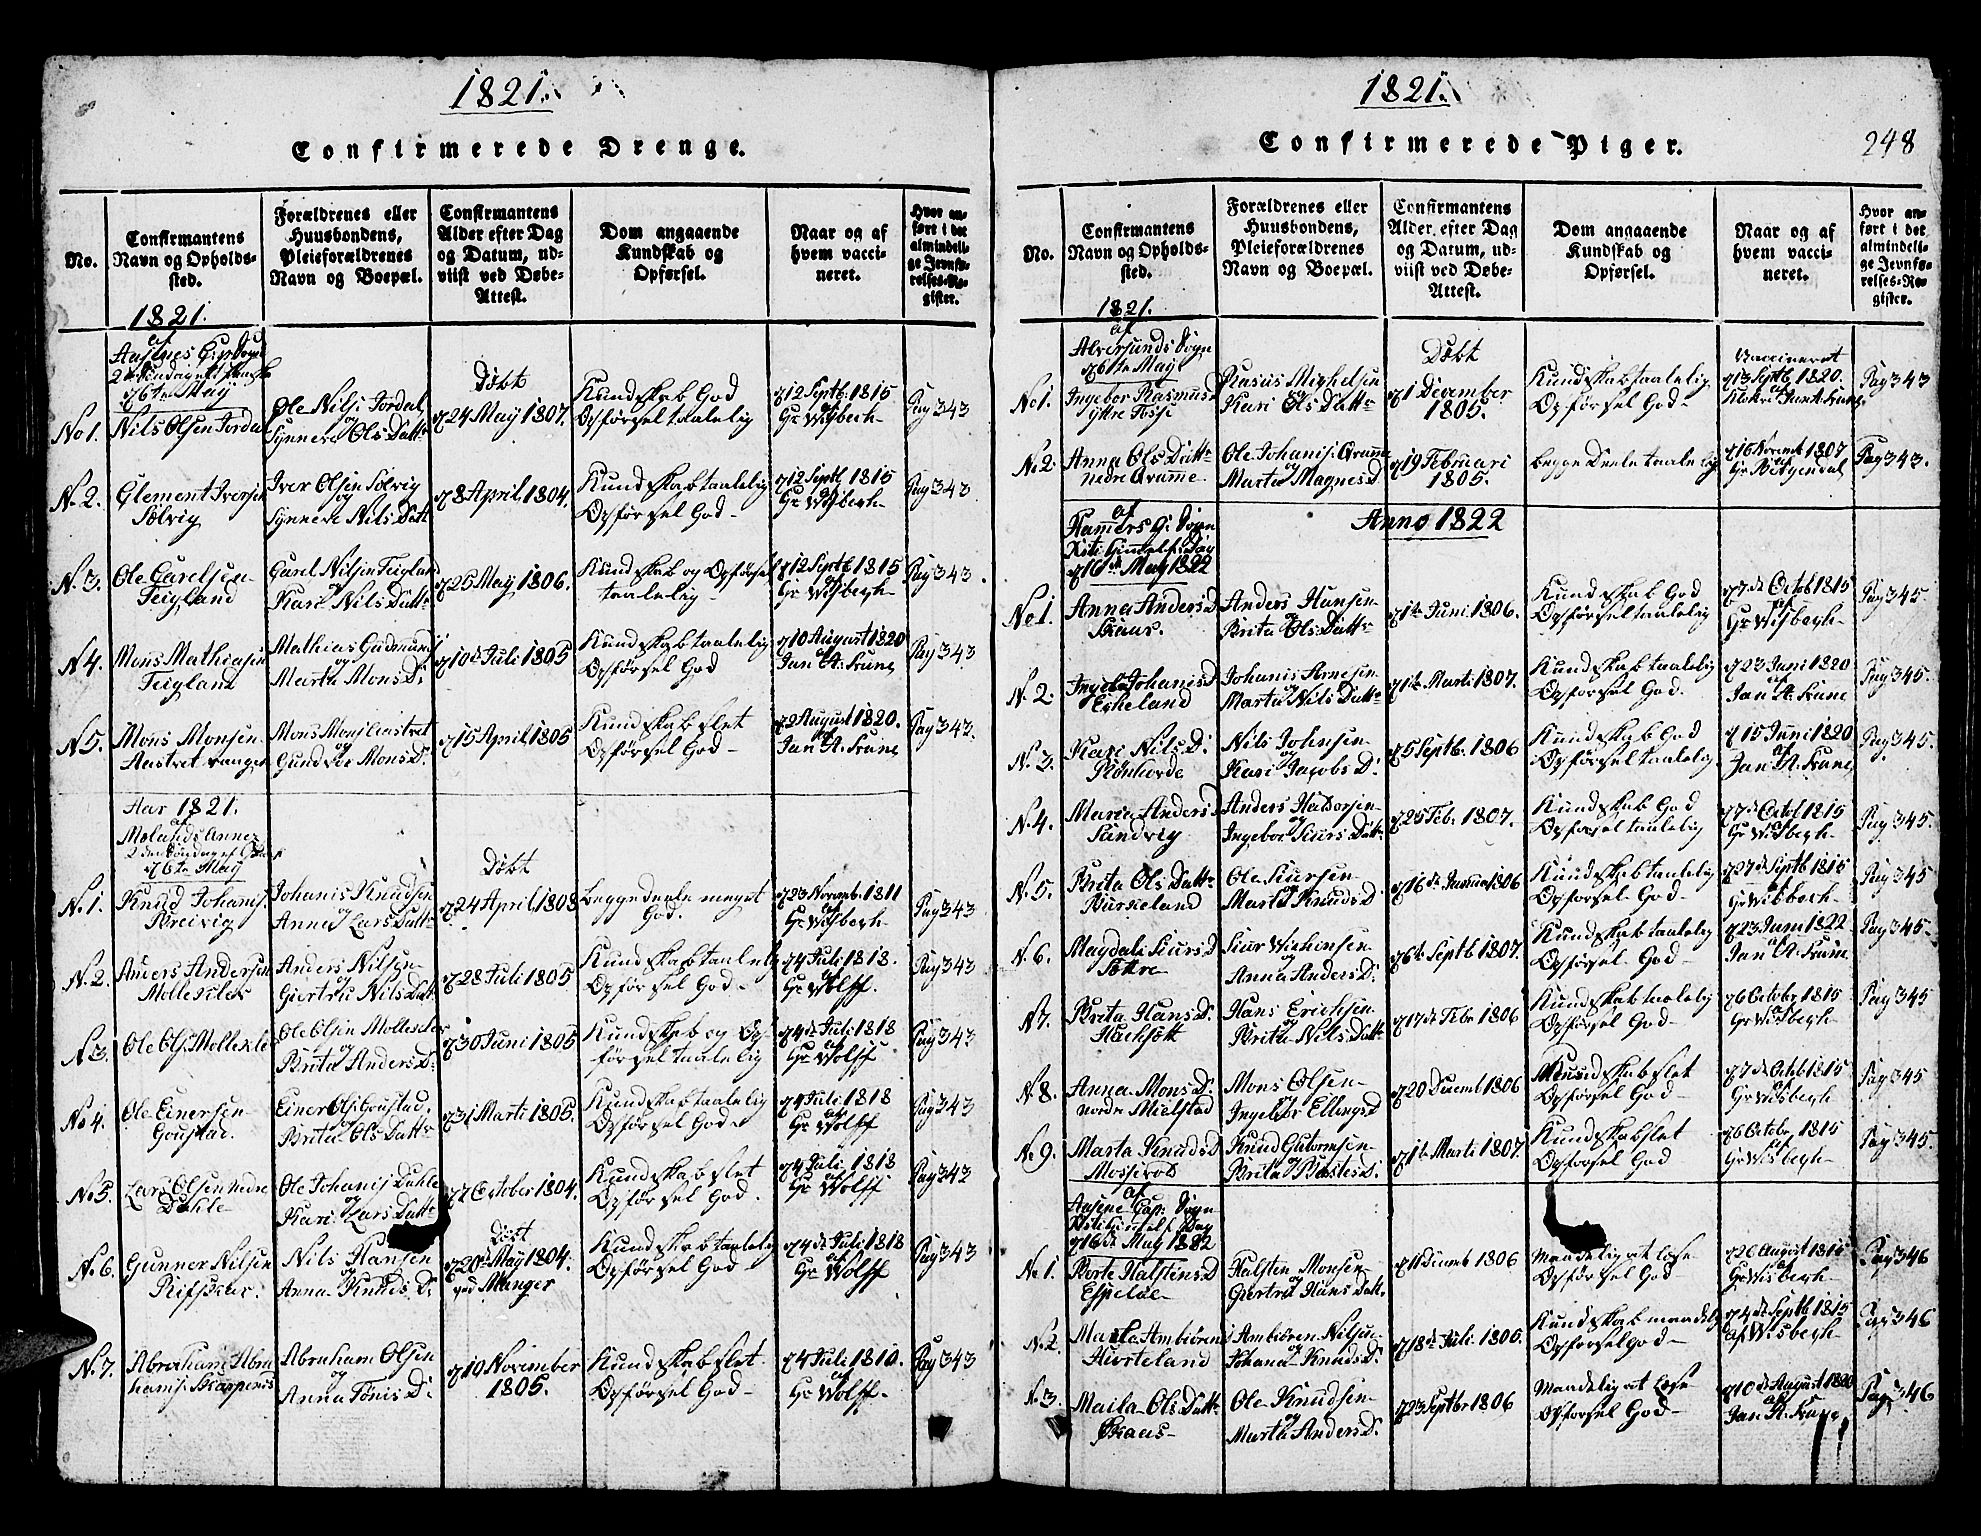 1821.
Confirmerede Drenge.
No.
Confirmantens
Navn og Opholds-
sted.
Forældrenes eller
Huusbondens,
Pleieforældrenes
Navn og Boepæl.
Confirmantens
Alder efter Dag
og Datum, ud-
viist ved Døbe-
Attest.
Dom angaaende
Kundskab og
Opførsel.
Naar og af
hvem vacci-
neret.
Hvor an-
ført i det
almindeli-
ge Jevnfø-
relses-Re-
gister.
1821.
af
6te May
No 1.
Nils Olsen Tordal
Ole Nilsj Tordal
og
Synneve Ols Dattr
Døbt
24 May 1807.
Kundskab God
Opførsel taalelig
12 Septb. 1815
af
Hr Wisbech
Pag 343
N. 2.
Clement Iversen
Solvig
Iver Olsen Solvig
og
Synneve Nils Datt
8 April 1804.
Kundskab taalelig
Opførsel God
12 Septb 1815
af
Hr Wisbergh
Pag 343
N. 3.
Ole Carelsen
Teigland
Carel Nilsen Teigland
og
Kari Nils Dattr
25 May 1806.
Kundskab og Opførsel
taalelig
12 Septb 1815
af
Hr Wisbergh
Pag 343
N 4.
Mons Mathiasen
Teigland
Mathias Gudmund
og
Marta Mons D:
10de Juli 1805
Kundskab taalelig
Opførsel God
10 August 1820
af
Jan A. Krune
Pag 343
N 5.
Mons Monsen
Mons Monsj
og
Mons D:
15 April 1805
Kundskab slet
Opførsel God
2 August 1820.
af
Jan A. Krune
Pag 343.
Aar 1821.
af
6te May
N. 1.
Knud Johansj
Breivig
Johanis Knudsen
og
Anna Lars Dattr
Døbt
24 April 1808
begge deele meget
God.
23 Novemb 1811
af
Hr Wisbergh
Pag 343
N. 2
Anders Andersen
Anders Nilsen
og
Giertru Nils Datt
28 Juli 1805
Kundskab taalelig
Opførsel God
4 Juli 1818.
af
Hr Wolff.
Pag 343
N 3.
Ole Olsj
Ole Olsen
og
Brita Anders D:
30 Juni 1805
Kundskab og Op-
førsel taalelig
4de Juli 1818
af
Hr Wolff
Pag 343
No 4.
Ole Einersen
Einer Olsj
og
Brita Ols Dattr
31 Marti 1805.
Kundskab taalelig
Opførsel God
4 Juli 1818
af
Hr Wolff
Pag 343
No 5.
Lars Olsen nedre
Dahle
Ole Johanisj Dahle
og
Kari Lars Dattr
7 October 1804.
Kundskab slet
Opførsel God.
4 Juli 1818
af
Hr Wolff
Pag 343
N. 6.
Gunner Nilsen
Nils Hansen
og
Anna Knuds D:
Døbt
20de May 1804.
ved Manger
Kundskab taalelig
Opførsel God
4de Juli 1818
af
Hr Wolff
Pag 343
N. 7.
Abraham Abra
hamsj
Abraham Olsen
og
Anna Tønis D:
10 November
1805.
Kundskab slet
Opførsel God
4 Juli 1810.
af
Hr Wolff.
Pag 343
1821.
Confirmerede Piger.
248
No.
Confirmantens
Navn og Opholds-
sted.
Forældrenes eller
Huusbondens,
Pleieforældrenes
Navn og Boepæl.
Confirmantens
Alder efter Dag
og Datum, ud-
viist ved Døbe-
Attest.
Dom angaaende
Kundskab og
Opførsel.
Naar og af
hvem vacci-
neret.
Hvor an-
ført i det
almindeli-
ge Jevnfø-
relses-Re-
gister.
1821.
af
Alversunds Sogn
6te May
No 1.
Ingebor Rasmus
yttre Fosse
Rasmus Michelsen
Kari Ols Dattr
Døbt
1 December
1805.
Kundskab taalelig
Opførsel God
Vaccineret
13 Septb 1820.
af
Jan A. Krune
Pag 343
No 2.
Anna Ols Dattr
nedre Qvamme
Ole Johanisj. Qvamme
og
Marta Magnes D
19 Februari
1805.
begge Deele taalelig
16 Novemb 1807
Pag 343.
Anno 1822
af
Hammers G: Sogn
16de May 1822
No 1.
Anna Anders D
Anders Hansen
og
Brita Ols Dattr
1te Juni 1806.
Kundskab God
Opførsel taalelig
7de Octob 1815
af
Hr Wisbergh
Pag 345
N. 2
Ingeb. Johanis D
Eskeland
Johanis Arnesen
og
Marta Nils Dattr
1te Marti 1807.
Kundskab taalelig
Opførsel God.
23 Juni 1820
af
Jan A. Krune
Pag 345.
N. 3.
Kari Nils D.
Nils Johnsen
og
Kari Jacobs D:
5 Septb. 1806
Kundskab God
Opførsel taalelig
15 Juni 1820
af
Jan A. Krune
Pag 345.
N. 4.
Maria Anders D
Sundvig
Anders Haldorsen
og
Ingebor Siurs Datt:
25 Feb. 1807.
Kundskab God
Opførsel taalelig
7de Octob 1815
af
Hr Wisbergh
Pag 345.
N. 5.
Brita Ols Dattr
Burkeland
Ole Siursen
og
Marta Knuds D
16de Janua 1806
Kundskab taalelig
Opførsel God
27de Septb 1815
af
Hr Wisbech
Pag 345
N. 6.
Magdali Siurs D
Siur
og
Anna Anders D:
6te Septb 1807.
Kundskab taalelig
Opførsel God
23 Juni 1822
af
Jan A. Krune
Pag 345
N 7.
Brita Hans D:
Hans Erichsen
og
Brita Nils Dattr
17de Febr 1806
Kundskab taalelig
Opførsel God
6 Octobr 1815
af
Hr Wisbergh
Pag 345
N. 8.
Anna Mons D:
nordre Mielstad
Mons Olsen
og
Ingebor Ellings D
20 Decemb 1806
Kundskab slet
Opførsel God
7de Octob 1815
af
Hr Wisbergh
Pag 345
No 9.
Marta Knuds D
Knud Guttormsen
og
Brita D:
1te Marti 1807.
Kundskab slet
Opførsel God
6 Octobr 1815
af
Hr Wisbergh
Pag 345.
af
16de May 1822
No 1.
Halstens D
Espeloe
Halsten Monsen
og
Giertru Hans Datt.
11 Decemb 1806
Maadelig at læse
Opførsel God
26 August 1815
af
Hr Wisbergh
Pag 346
N 2.
Marta Ambiøren
Hiorteland
Ambiøren Nilsen
og
Johana Knuds D:
18de Juli 1806.
Kundskab maadelig
Opførsel God
4de Septb 1815
af Wisbergh
Pag 346
N. 3.
Ols Dattr
Ole Knudsen
og
Marta Anders D:
23 Septbr 1806
Maadelig at læse
Opførsel God
10de August 1820
af
Jan A. Krune
Pag 346